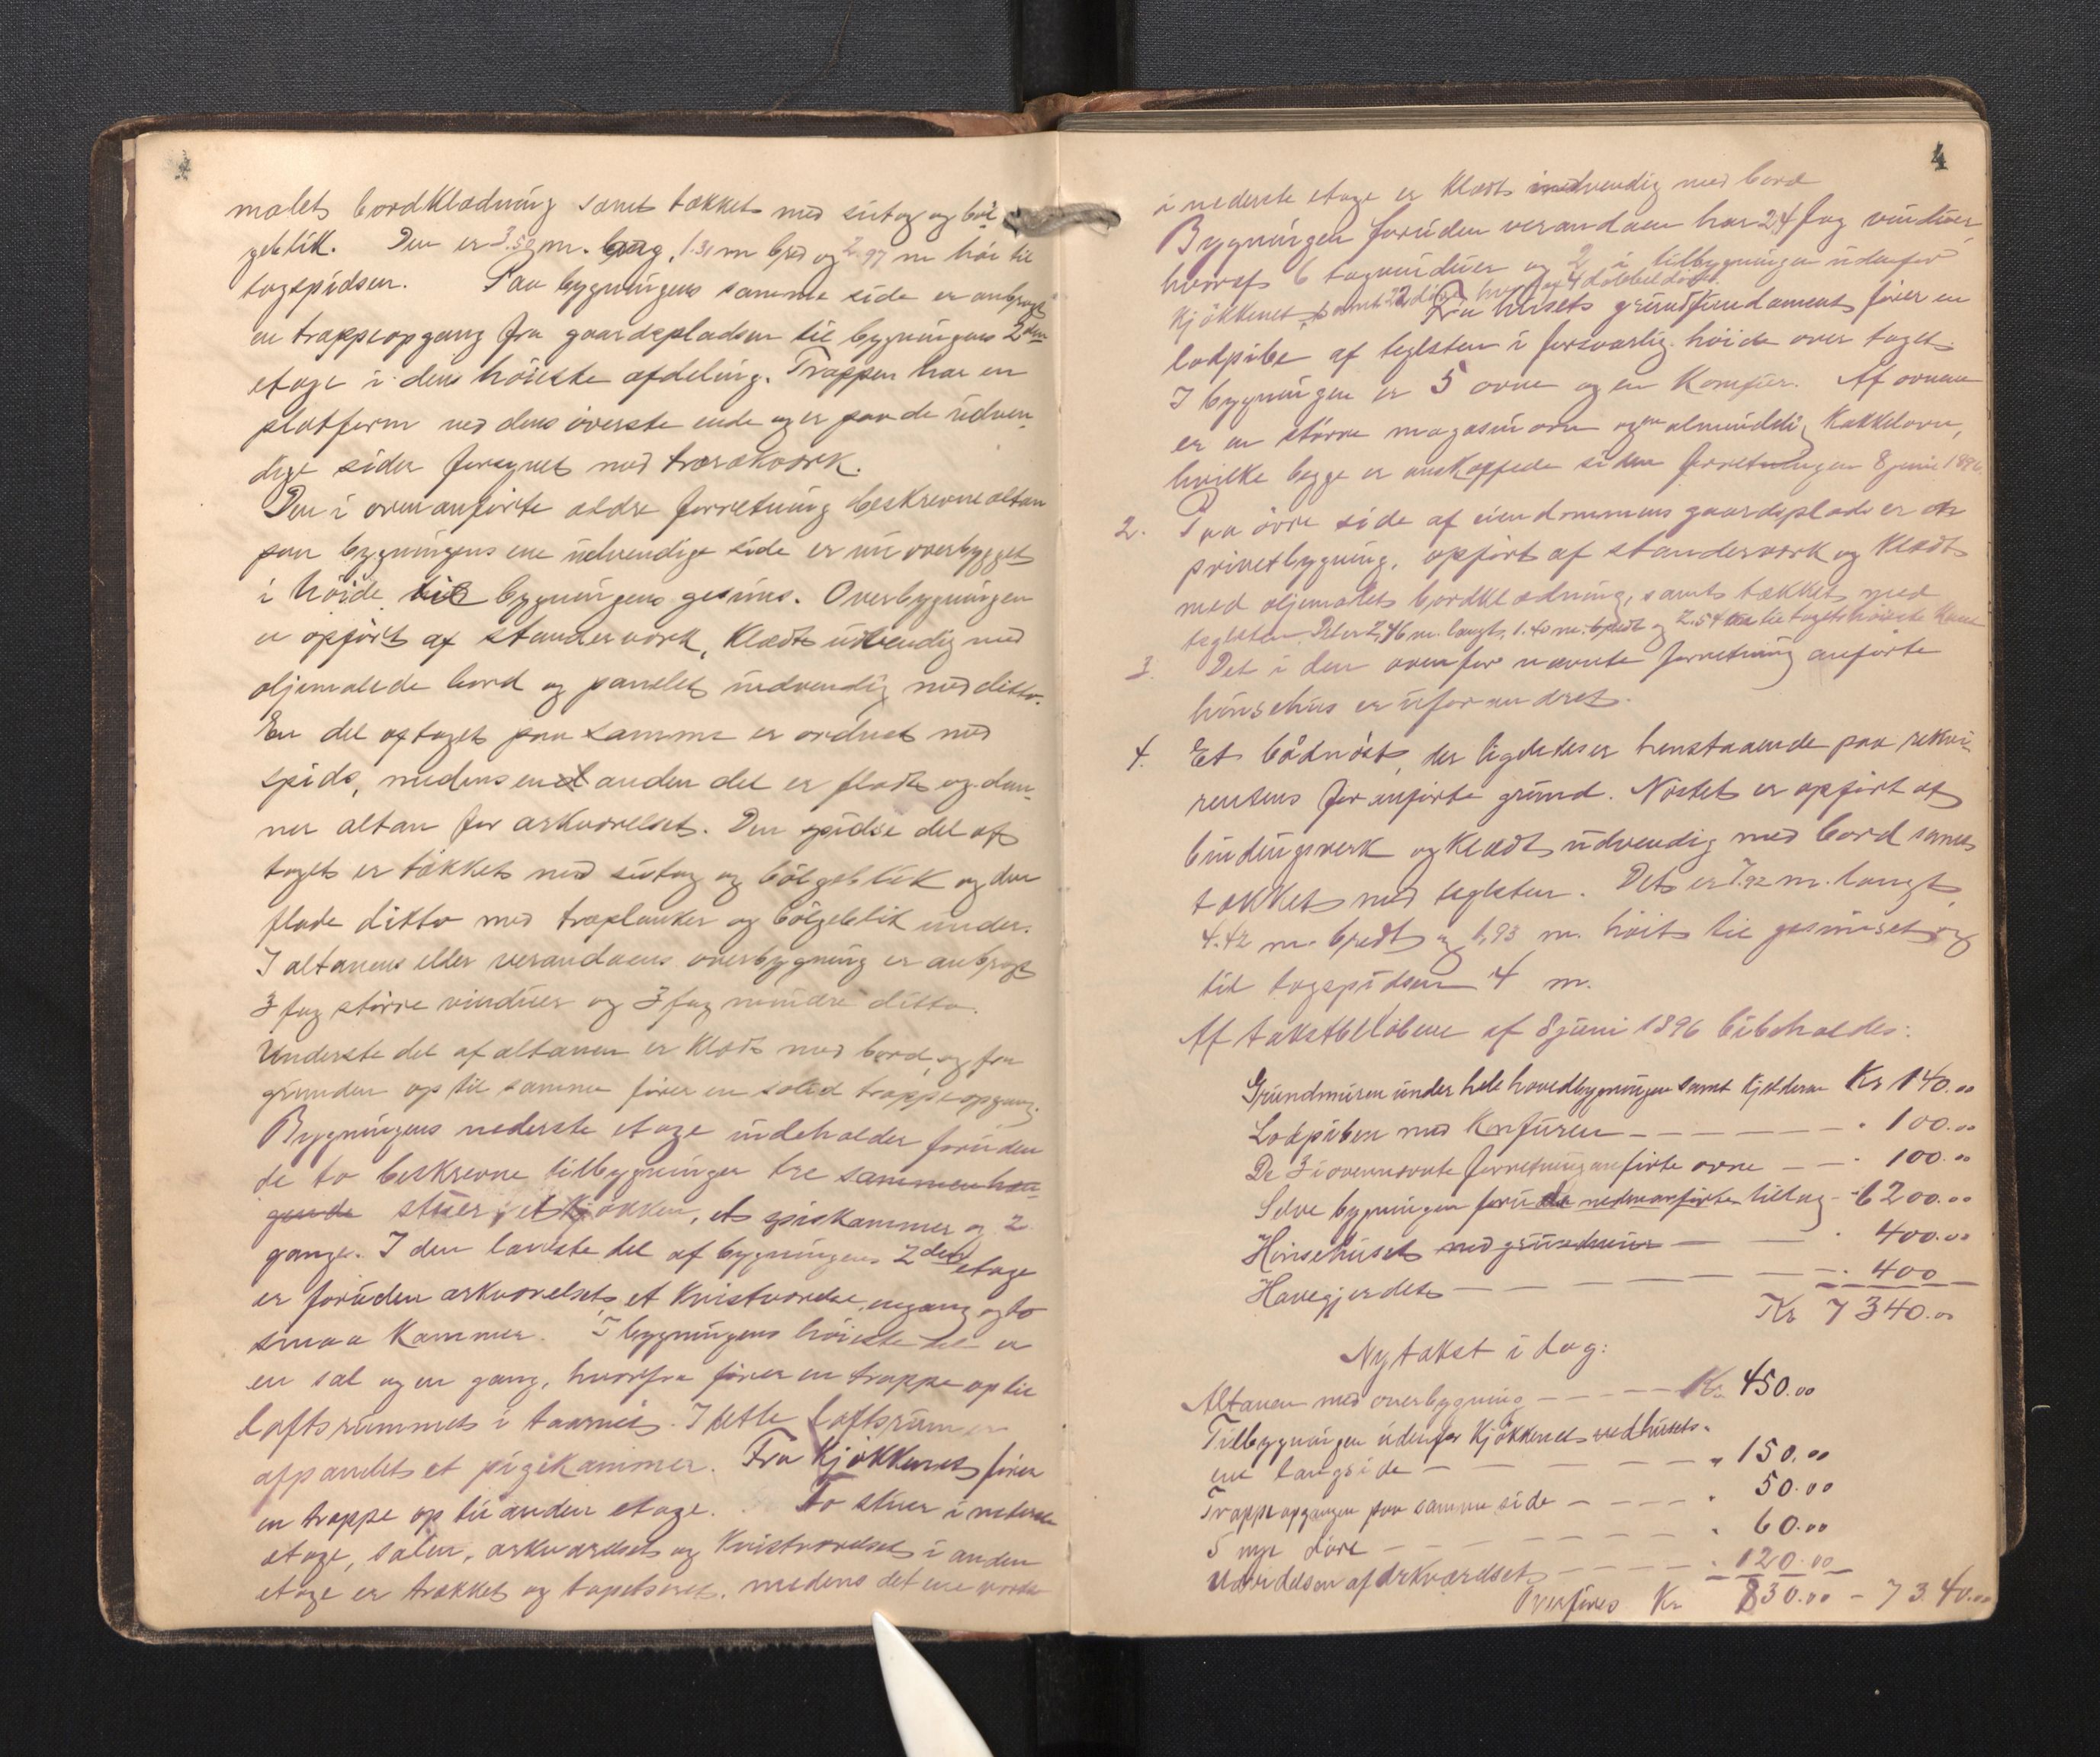 malet bordklædning samt tækket med sutag og böl
geblik. Den er 3.50 m. lang, 1.31 m bred og 2.97 m höi til
tagspidsen. Paa bygningens samme side er anbragt
en trappeopgang fra gaardspladsen til bygningens 2den
etage i dens höieste afdeling. Trappen har en
platform ved dens överste ende og er paa de udven-
dige sider forsynet med træræhværk.
Den i ovenanförte ældre forretning beskrevne altan
paa bygningens ene udvendige side er nu overbygget
i höide til bygningens gesims. Overbygningen
er opfört af standerværk, klædt udvendig med
oljemalede bord og panelet indvendig med ditto.
En del af taget paa samme er ordnet med
spids, medens en anden del er fladt og dan-
ner altan for arkværelset. Den spidse del af
taget er tækket med sutag og bölgeblik og den
flade ditto med træplanker og bölgeblik under.
I altanens eller verandaens overbygning er anbragt
3 fag större vinduer og 3 fag mindre ditto.
Underste del af altanen er klædt med bord, og fra
grunden op til samme förer en solid trappeopgang.
Bygningens nederste etage indeholder foruden
de to beskrevne tilbygninger tre sammenhæn-
gende stuer, et kjökken, et spiskammer og 2
gange. I den laveste del af bygningens 2den etage
er foruden arkværelset et kvistværelse, en gang og to
smaa kammer. I bygningens höieste del er
en sal og en gang, hvorfra förer en trappe op til
loftsrummet i taarnet. I dette loftsrum er
afpanelet et pigekammer. Fra kjökkenet förer
en trappe op til anden etage. To stuer i nederste
etage, salen, arkværelset og kvistværelset i anden
etage er trækket og tapetseret, medens det ene værelse
4
i nederste etage er klædt indvendig med bord
Bygningen foruden verandaen har 24 fag vinduer,
hvoraf 6 tagvinduer og 2 i tilbygningen udenfor
kjökkenet, samt 22 döre, hvoraf 4 dobbelte ditto.
Fra husets grundfundament förer en
lodpibe af teglsten i forsvarlig höide over taget.
I bygningen er 5 ovne og en komfur. Af ovnene
er en större magasinovn og en almindelig kakkelovn,
hvilke begge er anskaffede siden forretningen 8 juni 1896.
2. Paa övre side af eiendommens gaardsplads er en
privetbygning, opfört af standerværk og klædt
med oljemalet bordklædning, samt tækket med
teglsten. Det er 2,46 m. langt, 1.40 m. bredt og 2.54 m til tagets höieste kant
3. Det i den ovenfor nævnte forretning anförte
hönsehus er uforandret.
4. Et bådnöst, der ligeledes er henstaaende paa rekvi-
rentens foranförte grund. Nöstet er opfört af
bindingsverk og klædt udvendig med bord samt
tækket med teglsten. Det er 7.92 m. langt,
4.42 m. bredt og 1,93 m. höit til gesimset og
til tagspidsen 4 m.
Af takstbelöbene af 8 juni 1896 bibeholdes:
Grundmuren under hele hovedbygningen samt kjelderen Kr 140.00
Lodpiben med komfuren — — — " 100.00
De 3 i ovennævnte forretning anförte ovne — — " 100.00
Selve bygningen foruden nedenanförte tillæg - " 6200.00
Hönsehuset med grundmur — — " 400.00
Havegjerdet — — — — " 400
Kr 7340.00
Ny takst i dag:
Altanen med overbygning — — — Kr. 450.00
Tilbygningen udenfor kjökkenet ved husets
ene langside — — — — " 150.00
Trappeopgangen paa samme side — — — " 50.00
5 nye döre — — — — " 60.00
Udvidelsen af arkværelset — — — " 120.00
Overföres Kr 830.00 - 7340.00